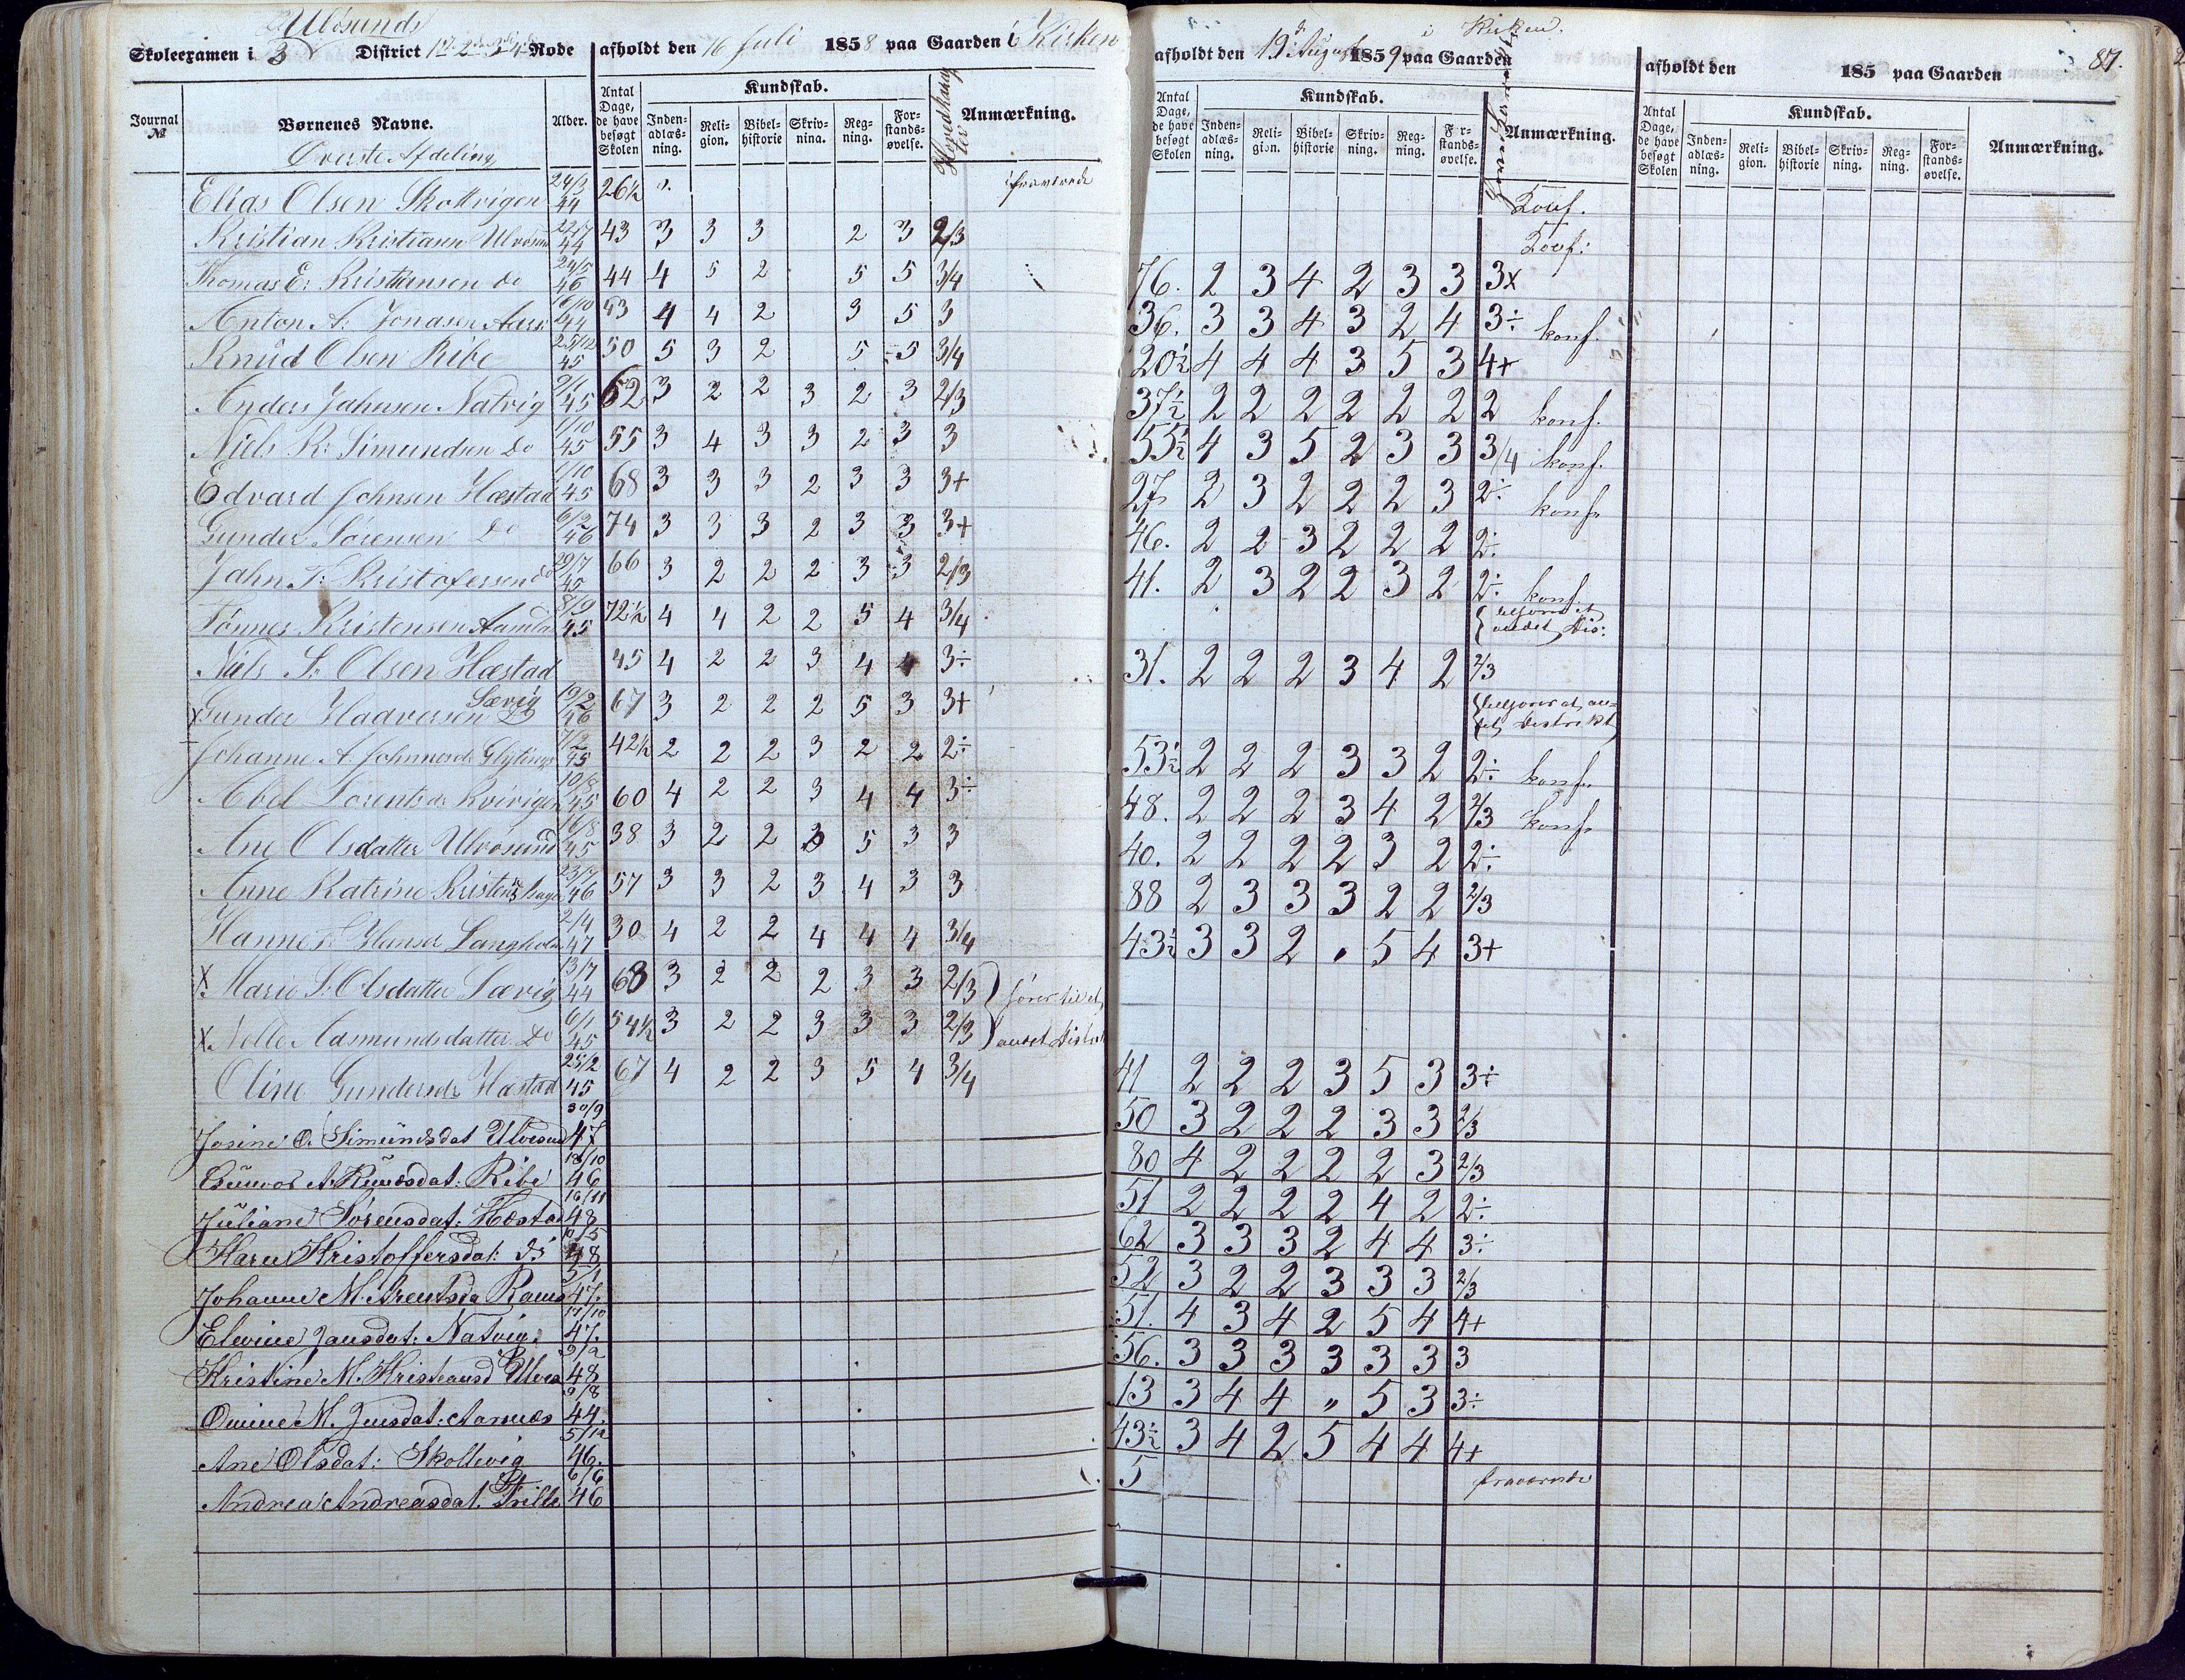 Ulvøsunds
Skoleexamen i 3 District 1 2 3 4 Rode afholdt den 16 Juli 1858 paa Gaarden i Kirken
Journal № Børnenes Navne. Alder. Antal Dage, de have besøgt Skolen Kundskab. Indenadlæsning. Religion. Bibelhistorie Skrivning. Regning. Forstandsøvelse. Hovedkarakter Anmærkning.
Øverste Afdeling
Elias Olsen Skottvigen 24/3 44 26½ fraværende
Kristian Kristiansen Ulvøsund 22/7 44 43 3 3 3 2 3 2/3
Thomas E. Kristiansen do 24/5 46 44 4 5 2 5 5 3/4
Anton A. Jonasen 16/10 44 43 4 4 2 3 5 3
Knud Olsen Ribe 25/12 45 50 5 3 2 5 5 3/4
Anders Jahnsen Natvig 9/1 45 62 3 2 2 3 2 3 2/3
Niels R. Simundsen do 1/10 45 55 3 4 3 3 2 3 3
Edvard Johnsen Hæstad 1/10 45 68 3 3 3 2 3 3 3+
Gunder Sørensen do 6/2 46 74 3 3 3 2 3 3 3+
Jahn T. Kristofersen do 29/7 45 66 3 2 2 2 3 3 2/3
Tønnes Kristensen Aamla 8/9 45 72½ 4 4 2 2 5 4 3/4
Niels S. Olsen Hæstad 45 4 2 2 3 4 4 3÷
x Gunder Haaversen Sævig 19/2 46 67 3 2 2 2 5 3 3+
Johanne A. Johnsend. 7/2 45 42½ 2 2 2 3 2 2 2÷
Abel Lorentsdr Kvivigen 10/8 45 60 4 2 2 3 4 4 3÷
Ane Olsdatter Ulvøsund 16/8 45 38 3 2 2 3 5 3 3
Anne Katrine 23/7 46 57 3 3 2 3 4 3 3
Hanne Hansd Langholm 2/4 47 30 4 2 2 4 4 4 3/4
x. Maria S. Olsdatter Sævig 13/7 44 68 3 2 2 2 3 3 2/3 hører til et
x. Nelle Aamundsdatter do 6/1 45 54½ 3 2 2 3 3 3 2/3 andet Distrikt
Oline Gundersdr Hæstad 25/2 45 67 4 2 2 3 5 4 3/4
Josine O. Simundsdat Ulvøsund 30/9 47
Gunvor A. Knudsdat: Ribe 18/10 46
Juliane Sørensdat: Hæstad 16/11 48
Karen Kristoffersdat: do 10/5 48
Johanne M. Arentsda 5/1 47.
Elevine Jansdat: Natvig. 17/10 47.
Kristine M. Kristiansd Ulvøs 9/2 48
Omine M. Jensdat: Aarnæs 9/8 44.
Ane Olsdat: Skottevig 5/12 46.
Andrea Andreasdat. Trille 6/6 46
afholdt den 19 August 1859 paa Gaarden i Kirken.
Antal Dage, de have besøgt Skolen Kundskab. Indenadlæsning. Religion. Bibelhistorie Skrivning. Regning. Forstandsøvelse. Anmærkning.
Konf.
Konf:
76. 2 3 4 2 3 3 3x
36. 3 3 4 3 2 4 3÷ konf.
20½ 4 4 4 3 5 3 4+
37½ 2 2 2 2 2 2 2 konf.
55½ 4 3 5 2 3 3 3/4 konf.
27 2 3 2 2 2 3 2÷ konf.
46. 2 2 3 2 2 2 2÷
41. 2 3 2 2 3 2 2÷ konf.
andet Dis:
31. 2 2 2 3 4 2 2/3
andet Distrikt
53½ 2 2 2 3 3 2 2÷ konf.
48. 2 2 2 3 4 2 2/3 konf.
40. 2 2 2 2 3 2 2÷
88 2 3 3 3 2 2 2/3
43½ 3 3 2 . 5 4 3+
41 2 2 2 3 5 3 3÷
50 3 2 2 2 3 3 2/3
80 4 2 2 2 2 3 2/3
51 2 2 2 2 4 2 2÷
62 3 3 3 2 4 4 3÷
52 3 2 2 3 3 3 2/3
51. 4 3 4 2 5 4 4+
56. 3 3 3 3 3 3 3
13 3 4 4 „ 5 3 3÷
43½ 3 4 2 5 4 4 4+
5 fraværende
afholdt den 185 paa Gaarden 87.
Antal Dage, de have besøgt Skolen Kundskab. Indenadlæsning. Religion. Bibelhistorie Skrivning. Regning. Forstandsøvelse. Anmærkning.